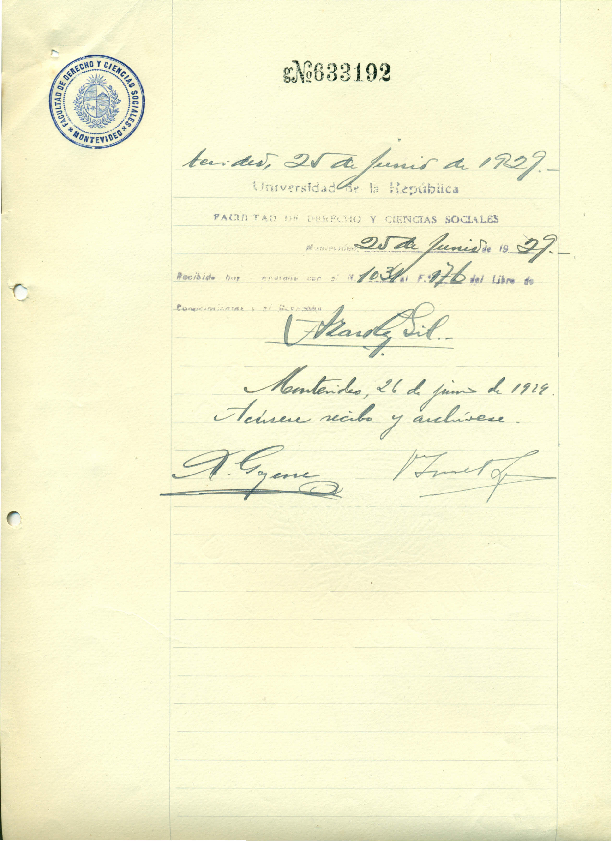 FACULTAD DE DERECHO Y CIENCIAS SOCIALES
MONTEVIDEO
Nº633192
25 de Junio de 1929.—
Universidad de la República
FACULTAD DE DERECHO Y CIENCIAS SOCIALES
Montevideo 25 de Junio de 1929.—
Recibido hoy 1031 al F. 176 del Libro de
Gil.—
Montevideo, 26 de junio de 1929.
Acúsese recibo y archívese.